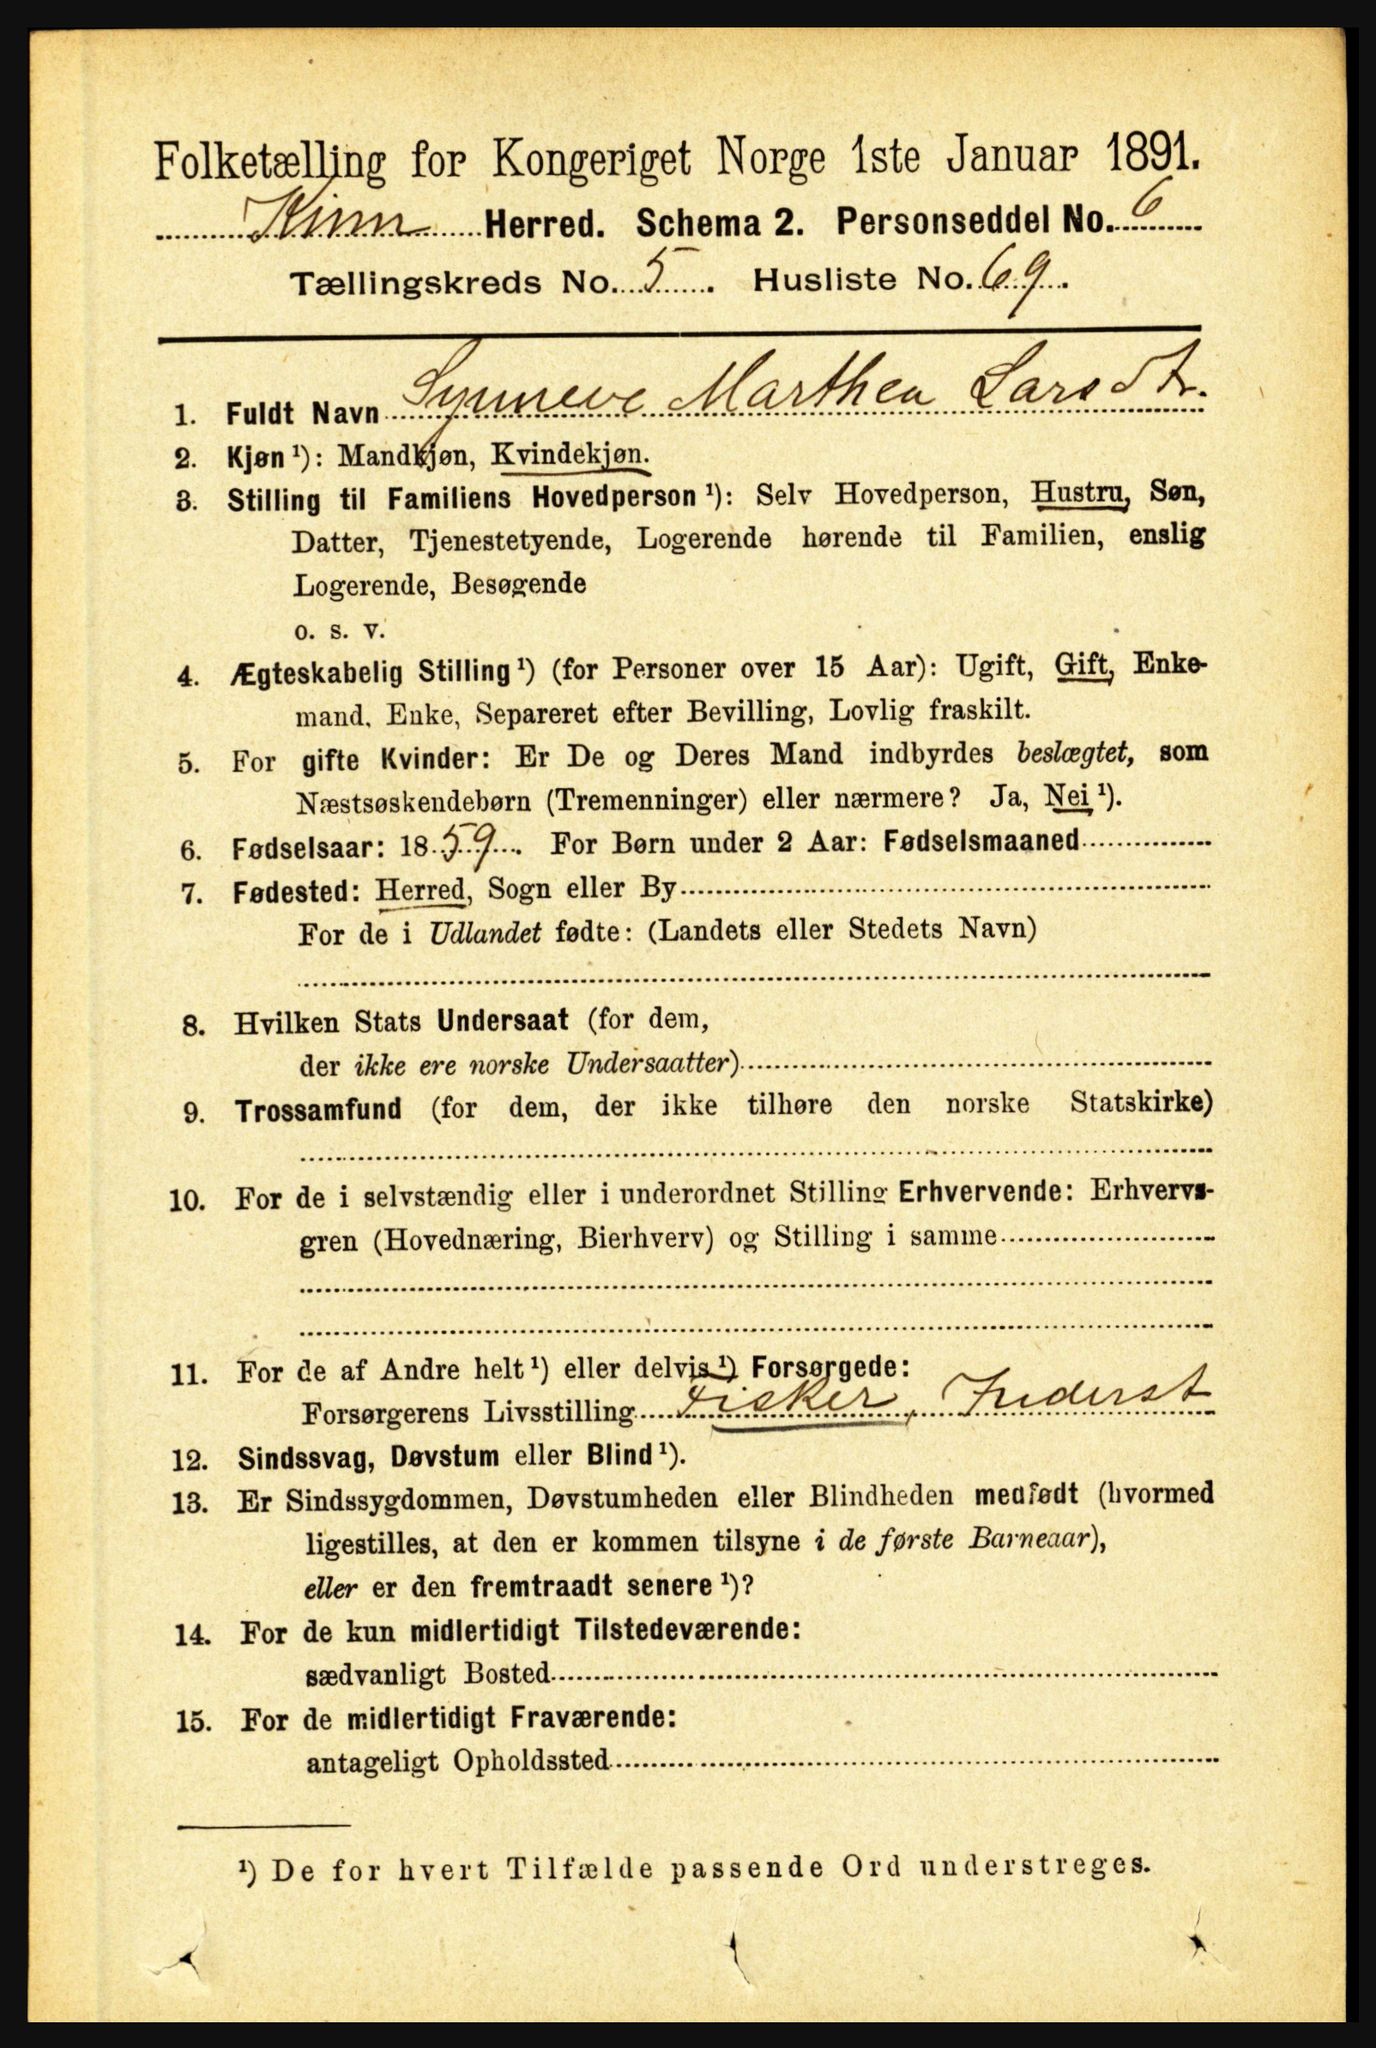 Folketælling for Kongeriget Norge 1ste Januar 1891.
Kinn Herred. Schema 2. Personseddel No. 6
Tællingskreds No. 5. Husliste No. 69.
1. Fuldt Navn Synneve Marthea Larsdtr.
2. Kjøn ¹): Mandkjøn, Kvindekjøn.
3. Stilling til Familiens Hovedperson ¹): Selv Hovedperson, Hustru, Søn,
Datter, Tjenestetyende, Logerende hørende til Familien, enslig
Logerende, Besøgende
o. s. v.
4. Ægteskabelig Stilling ¹) (for Personer over 15 Aar): Ugift, Gift, Enke-
mand, Enke, Separeret efter Bevilling, Lovlig fraskilt.
5. For gifte Kvinder: Er De og Deres Mand indbyrdes beslægtet, som
Næstsøskendebørn (Tremenninger) eller nærmere? Ja, Nei ¹).
6. Fødselsaar: 1859. For Børn under 2 Aar: Fødselsmaaned
7. Fødested: Herred, Sogn eller By
For de i Udlandet fødte: (Landets eller Stedets Navn)
8. Hvilken Stats Undersaat (for dem,
der ikke ere norske Undersaatter)
9. Trossamfund (for dem, der ikke tilhøre den norske Statskirke)
10. For de i selvstændig eller i underordnet Stilling Erhvervende: Erhvervs-
gren (Hovednæring, Bierhverv) og Stilling i samme
11. For de af Andre helt ¹) eller delvis ¹) Forsørgede:
Forsørgerens Livsstilling Fisker, Inderst
12. Sindssvag, Døvstum eller Blind ¹).
13. Er Sindssygdommen, Døvstumheden eller Blindheden medfødt (hvormed
ligestilles, at den er kommen tilsyne i de første Barneaar),
eller er den fremtraadt senere ¹)?
14. For de kun midlertidigt Tilstedeværende:
sædvanligt Bosted
15. For de midlertidigt Fraværende:
antageligt Opholdssted
¹) De for hvert Tilfælde passende Ord understreges.